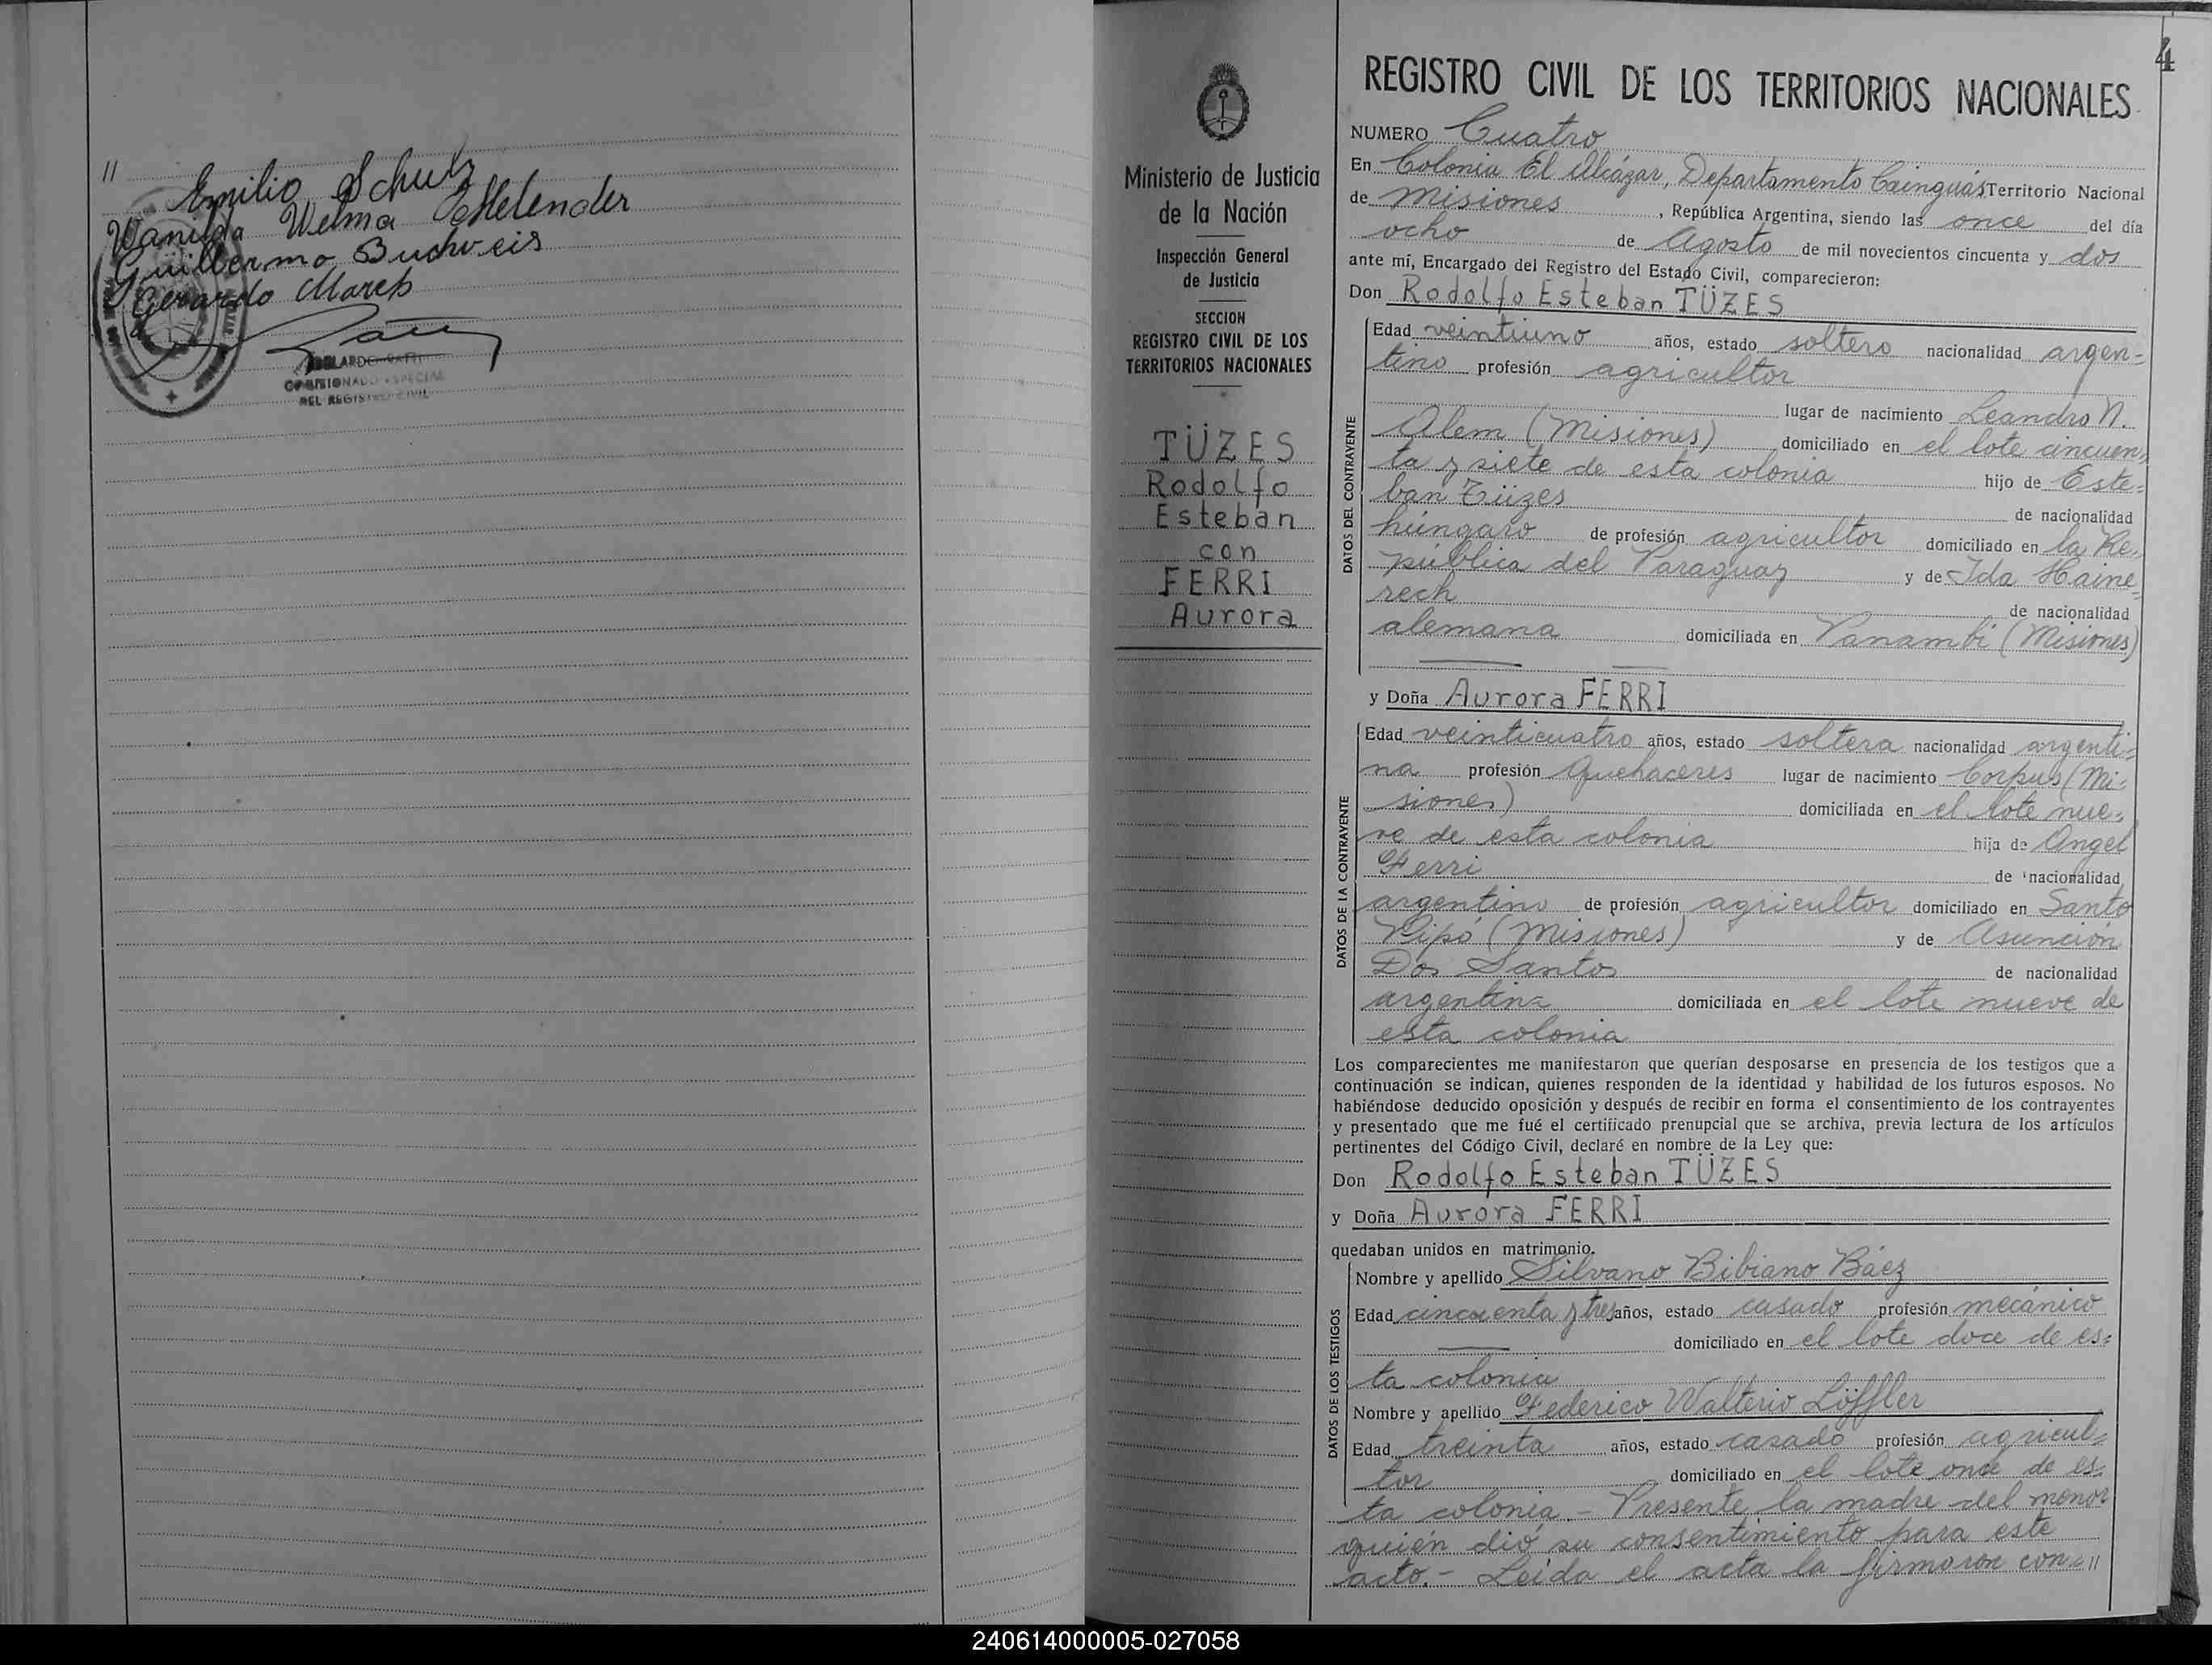 11
Emilio Schulz
Wanilda Welma Melender
Guillermo Buchveis
Gerardo March
COMISIONADO ESPECIAL
DEL REGISTRO CIVIL
4
Ministerio de Justicia
de la Nación
Inspección General
de Justicia
SECCION
REGISTRO CIVIL DE LOS
TERRITORIOS NACIONALES
TÜZES
Rodolfo
Esteban
con
FERRI
Aurora
REGISTRO CIVIL DE LOS TERRITORIOS NACIONALES
NUMERO Cuatro
En Colonia El Alcázar, Departamento Cainguás Territorio Nacional
de Misiones, República Argentina, siendo las once del día
ocho de Agosto de mil novecientos cincuenta y dos
ante mí, Encargado del Registro del Estado Civil, comparecieron:
Don Rodolfo Esteban TÜZES
DATOS DEL CONTRAYENTE
Edad veintiuno años, estado soltero nacionalidad argen=
tino profesión agricultor
lugar de nacimiento Leandro N.
Alem (Misiones) domiciliado en el lote cincuen=
ta y siete de esta colonia hijo de Este=
ban Tüzes de nacionalidad
húngaro de profesión agricultor domiciliado en la Re=
pública del Paraguay y de Ida Haine=
rech de nacionalidad
alemana domiciliada en Panambí (Misiones)
y Doña Aurora FERRI
DATOS DE LA CONTRAYENTE
Edad veinticuatro años, estado soltera nacionalidad argenti=
na profesión Quehaceres lugar de nacimiento Corpus (Mi=
siones) domiciliada en el lote nue=
ve de esta colonia hija de Angel
Ferri de nacionalidad
argentino de profesión agricultor domiciliado en Santo
Pipó (Misiones) y de Asunción
Dos Santos de nacionalidad
argentina domiciliada en el lote nueve de
esta colonia
Los comparecientes me manifestaron que querían desposarse en presencia de los testigos que a
continuación se indican, quienes responden de la identidad y habilidad de los futuros esposos. No
habiéndose deducido oposición y después de recibir en forma el consentimiento de los contrayentes
y presentado que me fué el certificado prenupcial que se archiva, previa lectura de los artículos
pertinentes del Código Civil, declaré en nombre de la Ley que:
Don Rodolfo Esteban TÜZES
y Doña Aurora FERRI
quedaban unidos en matrimonio.
DATOS DE LOS TESTIGOS
Nombre y apellido Silvano Bibiano Báez
Edad cincuenta y tres años, estado casado profesión mecánico
domiciliado en el lote doce de es=
ta colonia
Nombre y apellido Federico Walterio Löffler
Edad treinta años, estado casado profesión agricul=
tor domiciliado en el lote once de es=
ta colonia – Presente la madre del menor
quién dió su consentimiento para este
acto.- Leída el acta la firmaron con=11
240614000005-027058